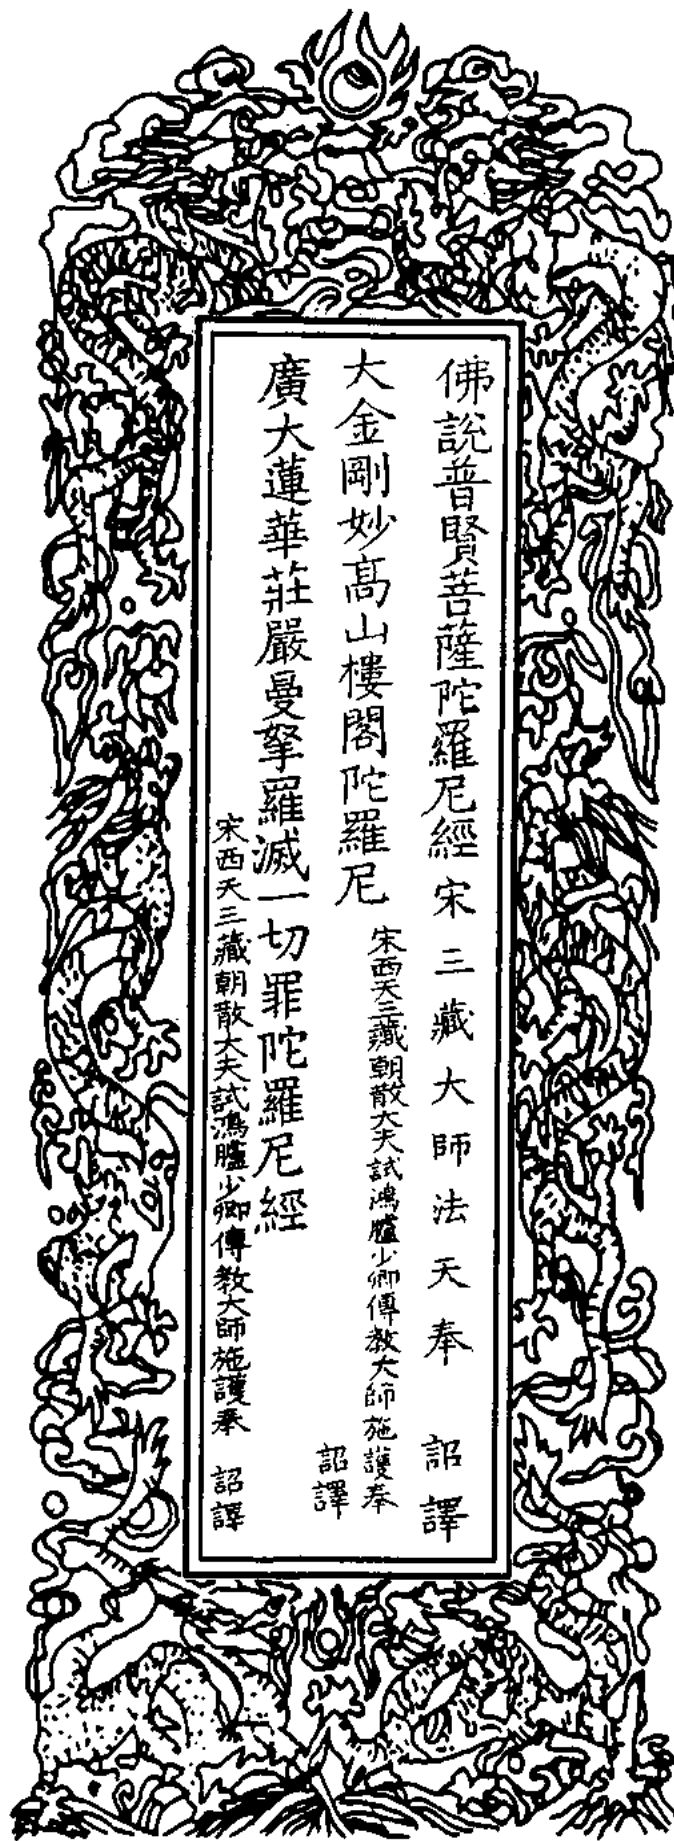 佛說普賢菩薩陀羅尼經 宋三藏大師法天奉 詔譯
大金剛妙高山樓閣陀羅尼
宋西天三藏朝散大夫試鴻臚少卿傳教大師施護奉
詔譯
廣大蓮華莊嚴曼拏羅滅一切罪陀羅尼經
宋西天三藏朝散大夫試鴻臚少卿傳教大師施護奉 詔譯